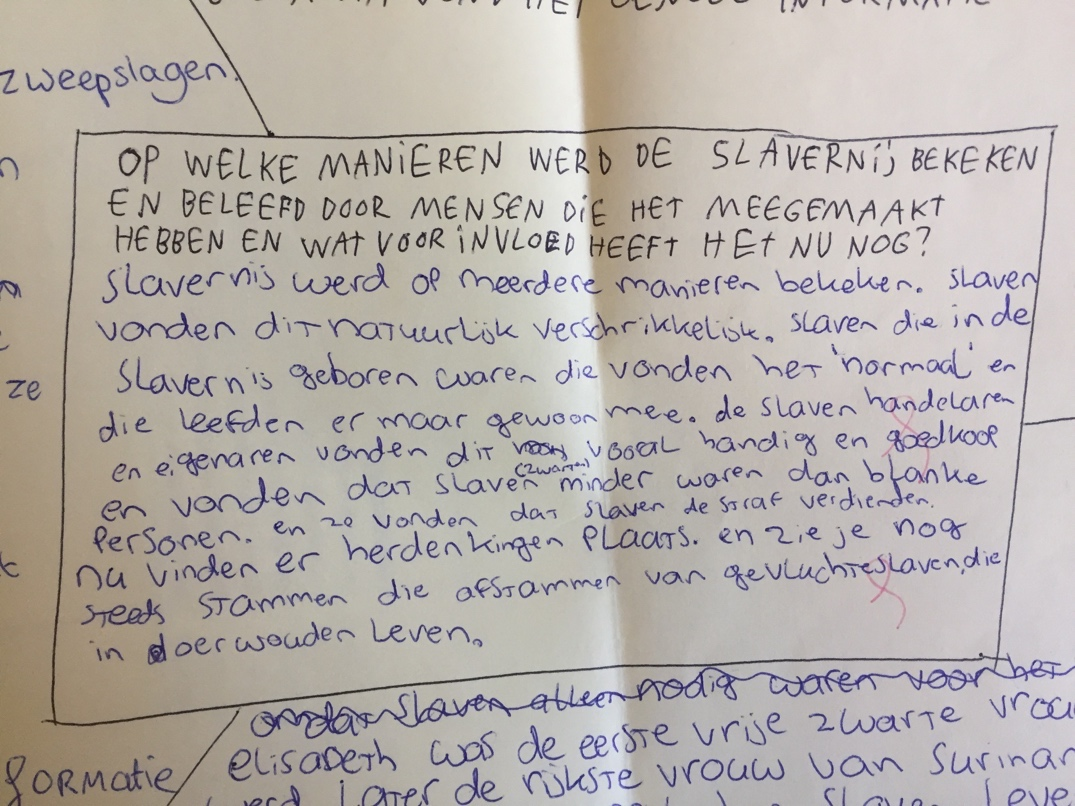 VOND HET GENOEG INFORMATIE
zweepslagen.
n
OP WELKE MANIEREN WERD DE SLAVERNIJ BEKEKEN
EN BELEEFD DOOR MENSEN DIE HET MEEGEMAAKT
HEBBEN EN WAT VOOR INVLOED HEEFT HET NU NOG?
slavernij werd op meerdere manieren bekeken. slaven
vonden dit natuurlijk verschrikkelijk. slaven die in de
ze
slavernij geboren waren die vonden het 'normaal' en
die leefden er maar gewoon mee. de slaven handelaren
en eigenaren vonden dit vooral handig en goedkoop
(zwarten)
en vonden dat slaven minder waren dan blanke
personen. en ze vonden dat slaven de straf verdienden.
nu vinden er herdenkingen plaats. en zie je nog
steeds stammen die afstammen van gevluchte slaven, die
in oerwouden leven.
omdat slaven alleen nodig waren voor het
elisabeth was de eerste vrije zwarte vrou
formatie
later de rijkste vrouw van Surinam